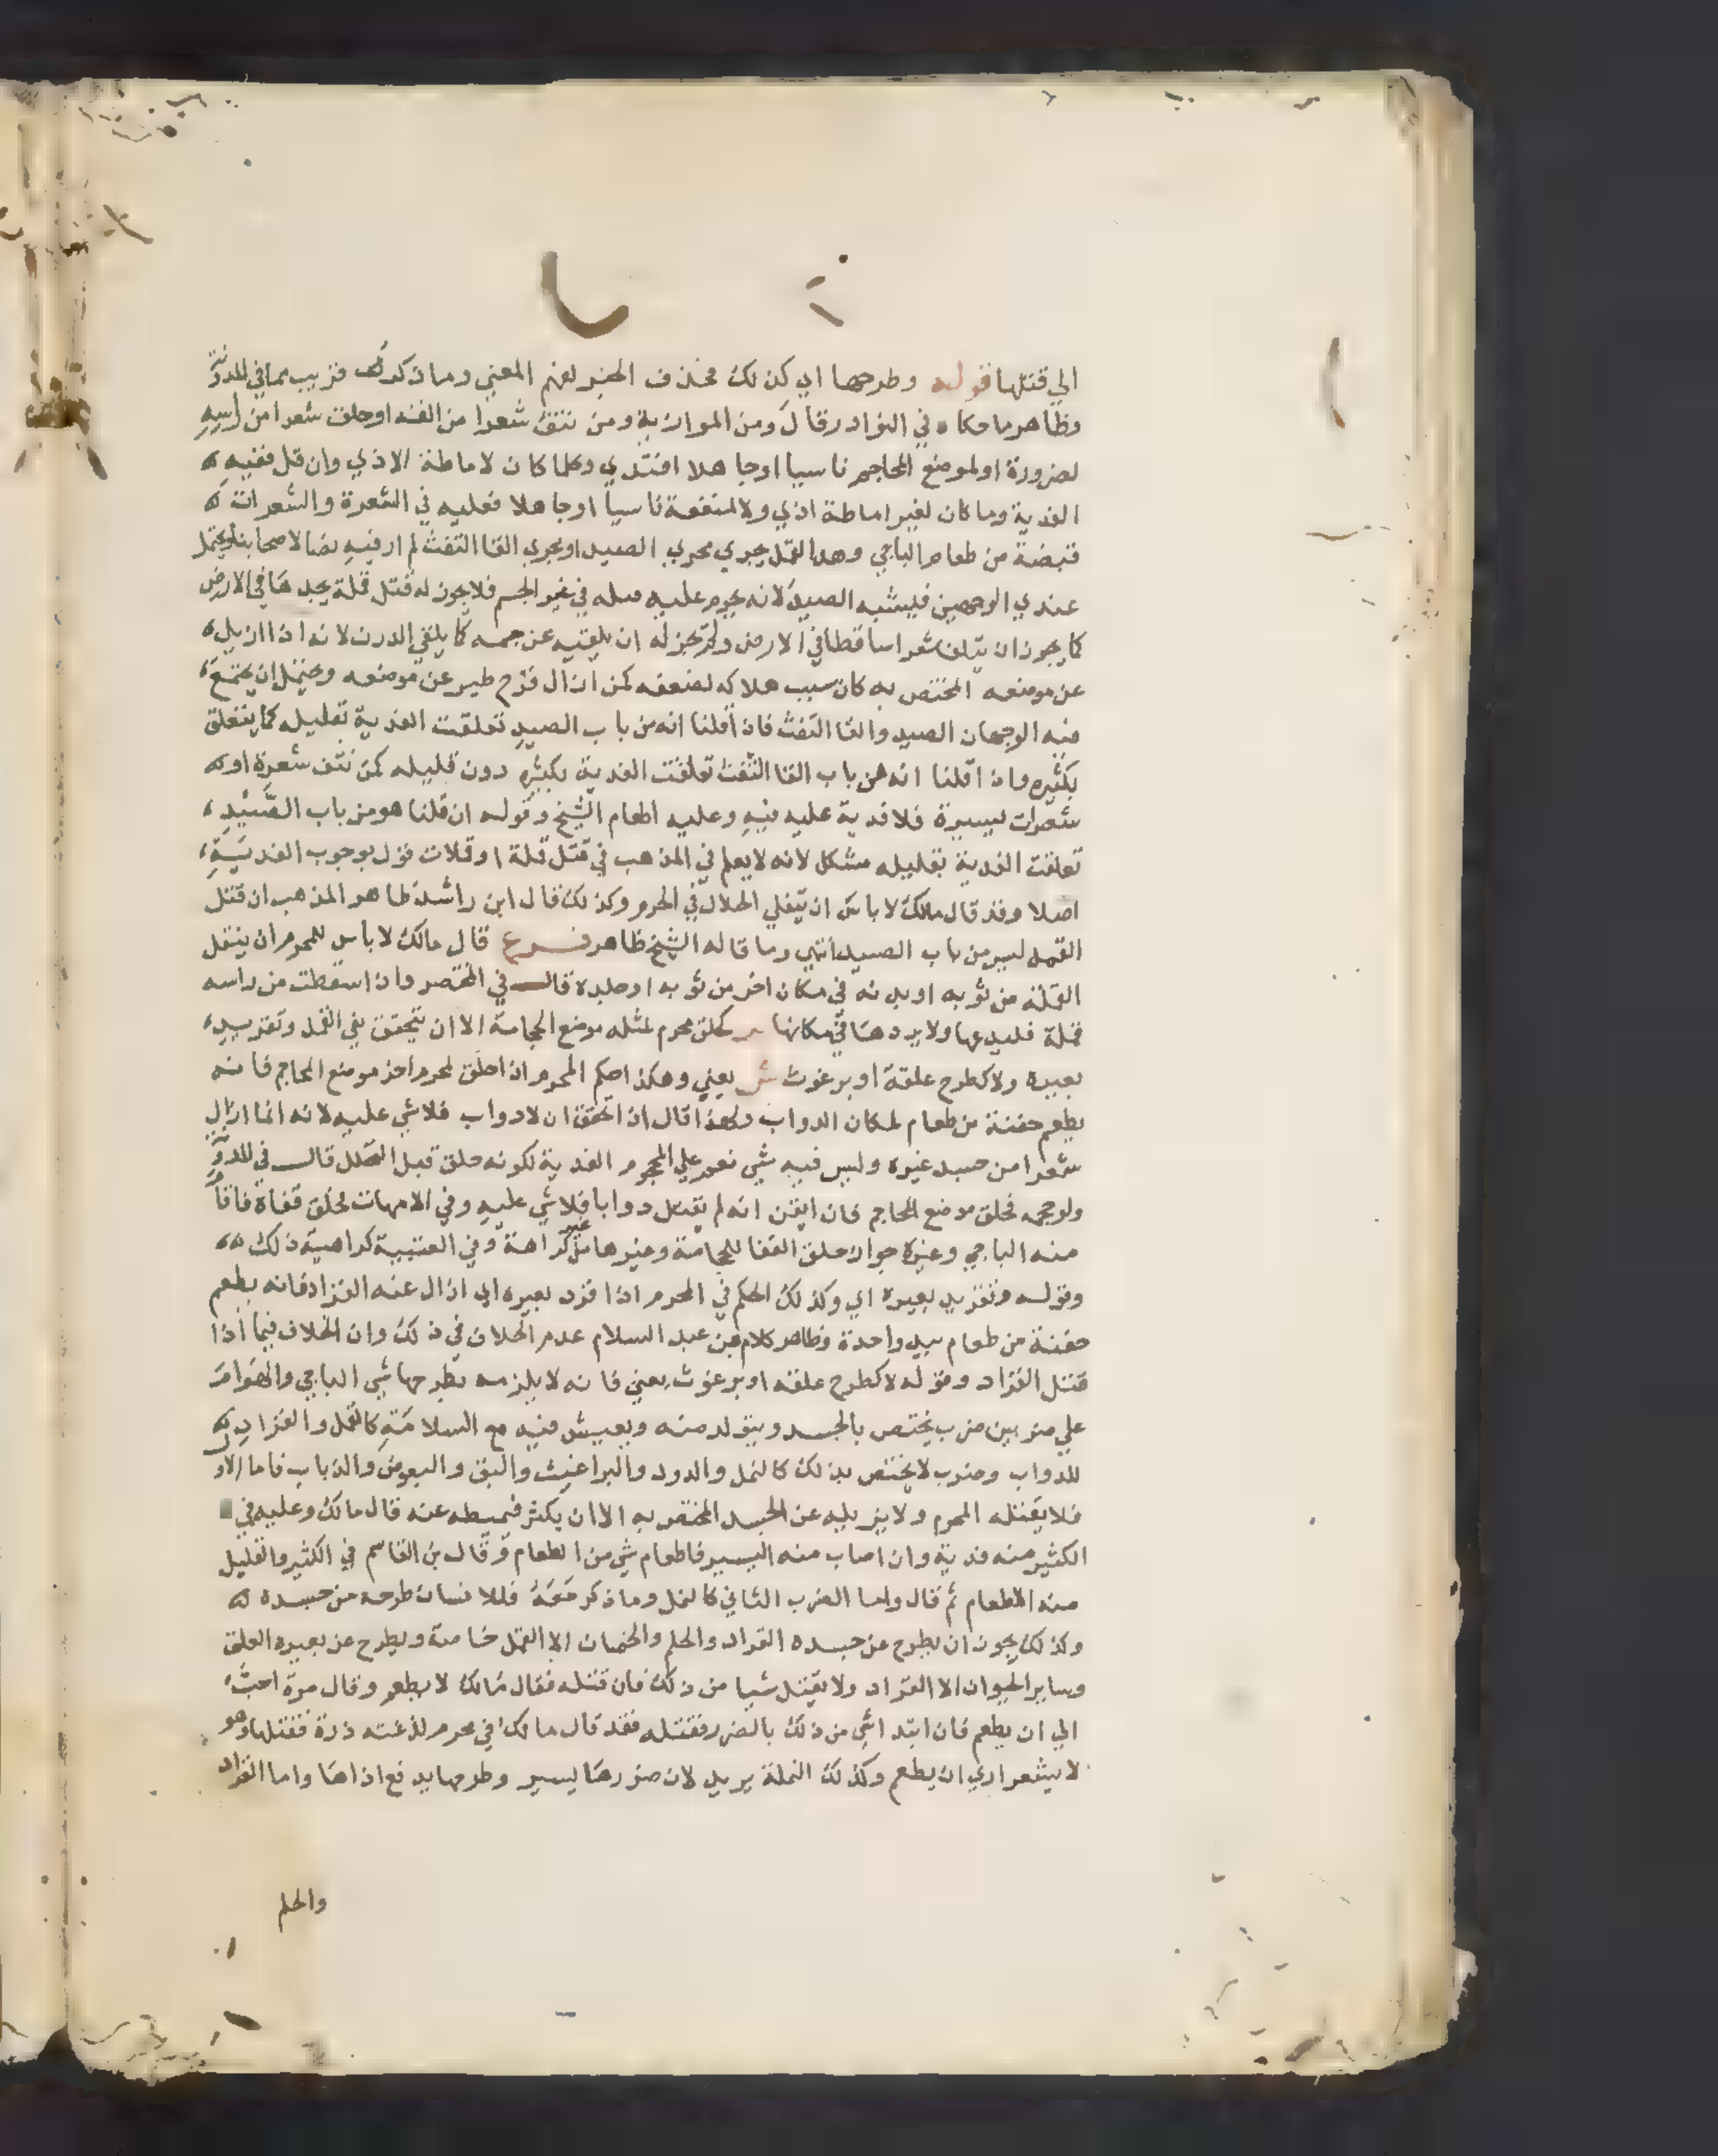 الي قتلها قوله وطرحها اي كذلك فحذف الخبر لفهم المعني وما ذكره قريب مما في المدونة
وظاهر ما حكاه في النوادر قال ومن الموازية ومن نتف شعرا من انفه او حلق شعرا من راسه
لضرورة او لموضع المحاجم ناسيا او جاهلا افتدي وكلما كان لاماطة الاذي وان قل ففيه
الفدية وما كان لغير اماطة اذي ولا لمنفعة ناسيا او جاهلا فعليه في الشعرة والشعرات
قبضة من طعام الباجي وهل القمل يجري مجري الصيد او يجري القا التفث لم ار فيه نصا لاصحابنا ويحتمل
عندي الوجهين فيشبه الصيد لانه يحرم عليه قتله في غير الجسم فلا يجوز له قتل قملة يجدها في الارض
كما يجوز ان يتلف شعرا ساقطا في الارض ولم يجز له ان يلقيه عن جسمه كما يلقي الدرن لانه اذا ازيل
عن موضعه المختص به كان سبب هلاكه لضعفه كمن ازال فرخ طير عن موضعه ويحتمل ان يجتمع
فيه الوجهان الصيد والقا التفث فاذا قلنا انه من باب الصيد تعلقت الفدية بقليله كما يتعلق
بكثيره واذا قلنا انه من باب القا التفث تعلقت الفدية بكثيره دون قليله كمن نتف شعرة او
شعرات يسيرة فلا فدية عليه فيه وعليه اطعام الشيخ وقوله ان قلنا هو من باب الصيد
تعلقت الفدية بقليله مشكل لانه لا يعلم في المذهب في قتل قملة او قملات قول بوجوب الفدية
اصلا وقد قال مالك لا باس ان يتفلي الحلال في الحرم وكذلك قال ابن راشد ظاهر المذهب ان قتل
القمل ليس من باب الصيد انتهي وما قاله الشيخ ظاهر فرع قال مالك لا باس للمحرم ان ينقل
القملة من ثوبه او بدنه في مكان اخر من ثوبه او جلده قال في المختصر واذا سقطت من راسه
قملة فليدعها ولا يردها في مكانها ص كحلق محرم لمثله موضع الحجامة الا ان يتحقق نفي القمل وتقريد
بعيره ولا كطرح علقة او برغوث ش يعني وهكذا حكم المحرم اذا حلق لمحرم اخر موضع المحاجم فانه
يطعم حفنة من طعام لمكان الدواب ولهذا قال اذا تحقق ان لا دواب فلا شي عليه لانه انما ازال
شعرا من جسد غيره وليس فيه شي نعم علي المحرم الفدية لكونه حلق قبل التحلل قال في المدونة
ولو حجمه فحلق موضع المحاجم فان ايقن انه لم يقتل دوابا فلا شي عليه وفي الامهات لحلق قفاه فاقام
منه الباجي وغيره جواز حلق القفا للحجامة وغيرها من غير كراهة وفي العتبية كراهية ذلك
وقوله وتقريد بعيره اي وكذلك الحكم في المحرم اذا قرد بعيره اي ازال عنه القراد فانه يطعم
حفنة من طعام بيد واحدة وظاهر كلام بن عبد السلام عدم الخلاف في ذلك وان الخلاف فيما اذا
قتل القراد وقوله لا كطرح علقة او برغوث يعني فانه لا يلزمه بطرحها شي الباجي والهوام
علي ضربين ضرب يختص بالجسد ويتولد منه ويعيش فيه مع السلامة كالقمل والقراد
للدواب وضرب لا يختص بذلك كالنمل والدود والبراغيث والبق والبعوض والذباب فاما الاول
فلا يقتله المحرم ولا يزيله عن الجسد المختص به الا ان يكثر فيميطه عنه قال مالك وعليه في
الكثير منه فدية وان اصاب منه اليسير فاطعام شي من الطعام وقال بن القاسم في الكثير والقليل
منه الاطعام ثم قال واما الضرب الثاني كالنمل وما ذكر معه فللانسان طرحه من جسده
وكذلك يجوز ان يطرح عن جسده القراد والحلم والحمنان الا القمل خاصة ويطرح عن بعيره العلق
وساير الحيوان الا القراد ولا يقتل شيا من ذلك فان قتله فقال مالك لا يطعم وقال مرة احب
الي ان يطعم فان ابتدا شي من ذلك بالضرر فقتله فقد قال مالك في محرم لدغته ذرة فقتلها وهو
لا يشعر اري ان يطعم وكذلك النملة يريد لان ضررها يسير وطرحها يدفع اذاها واما القراد
والحلم